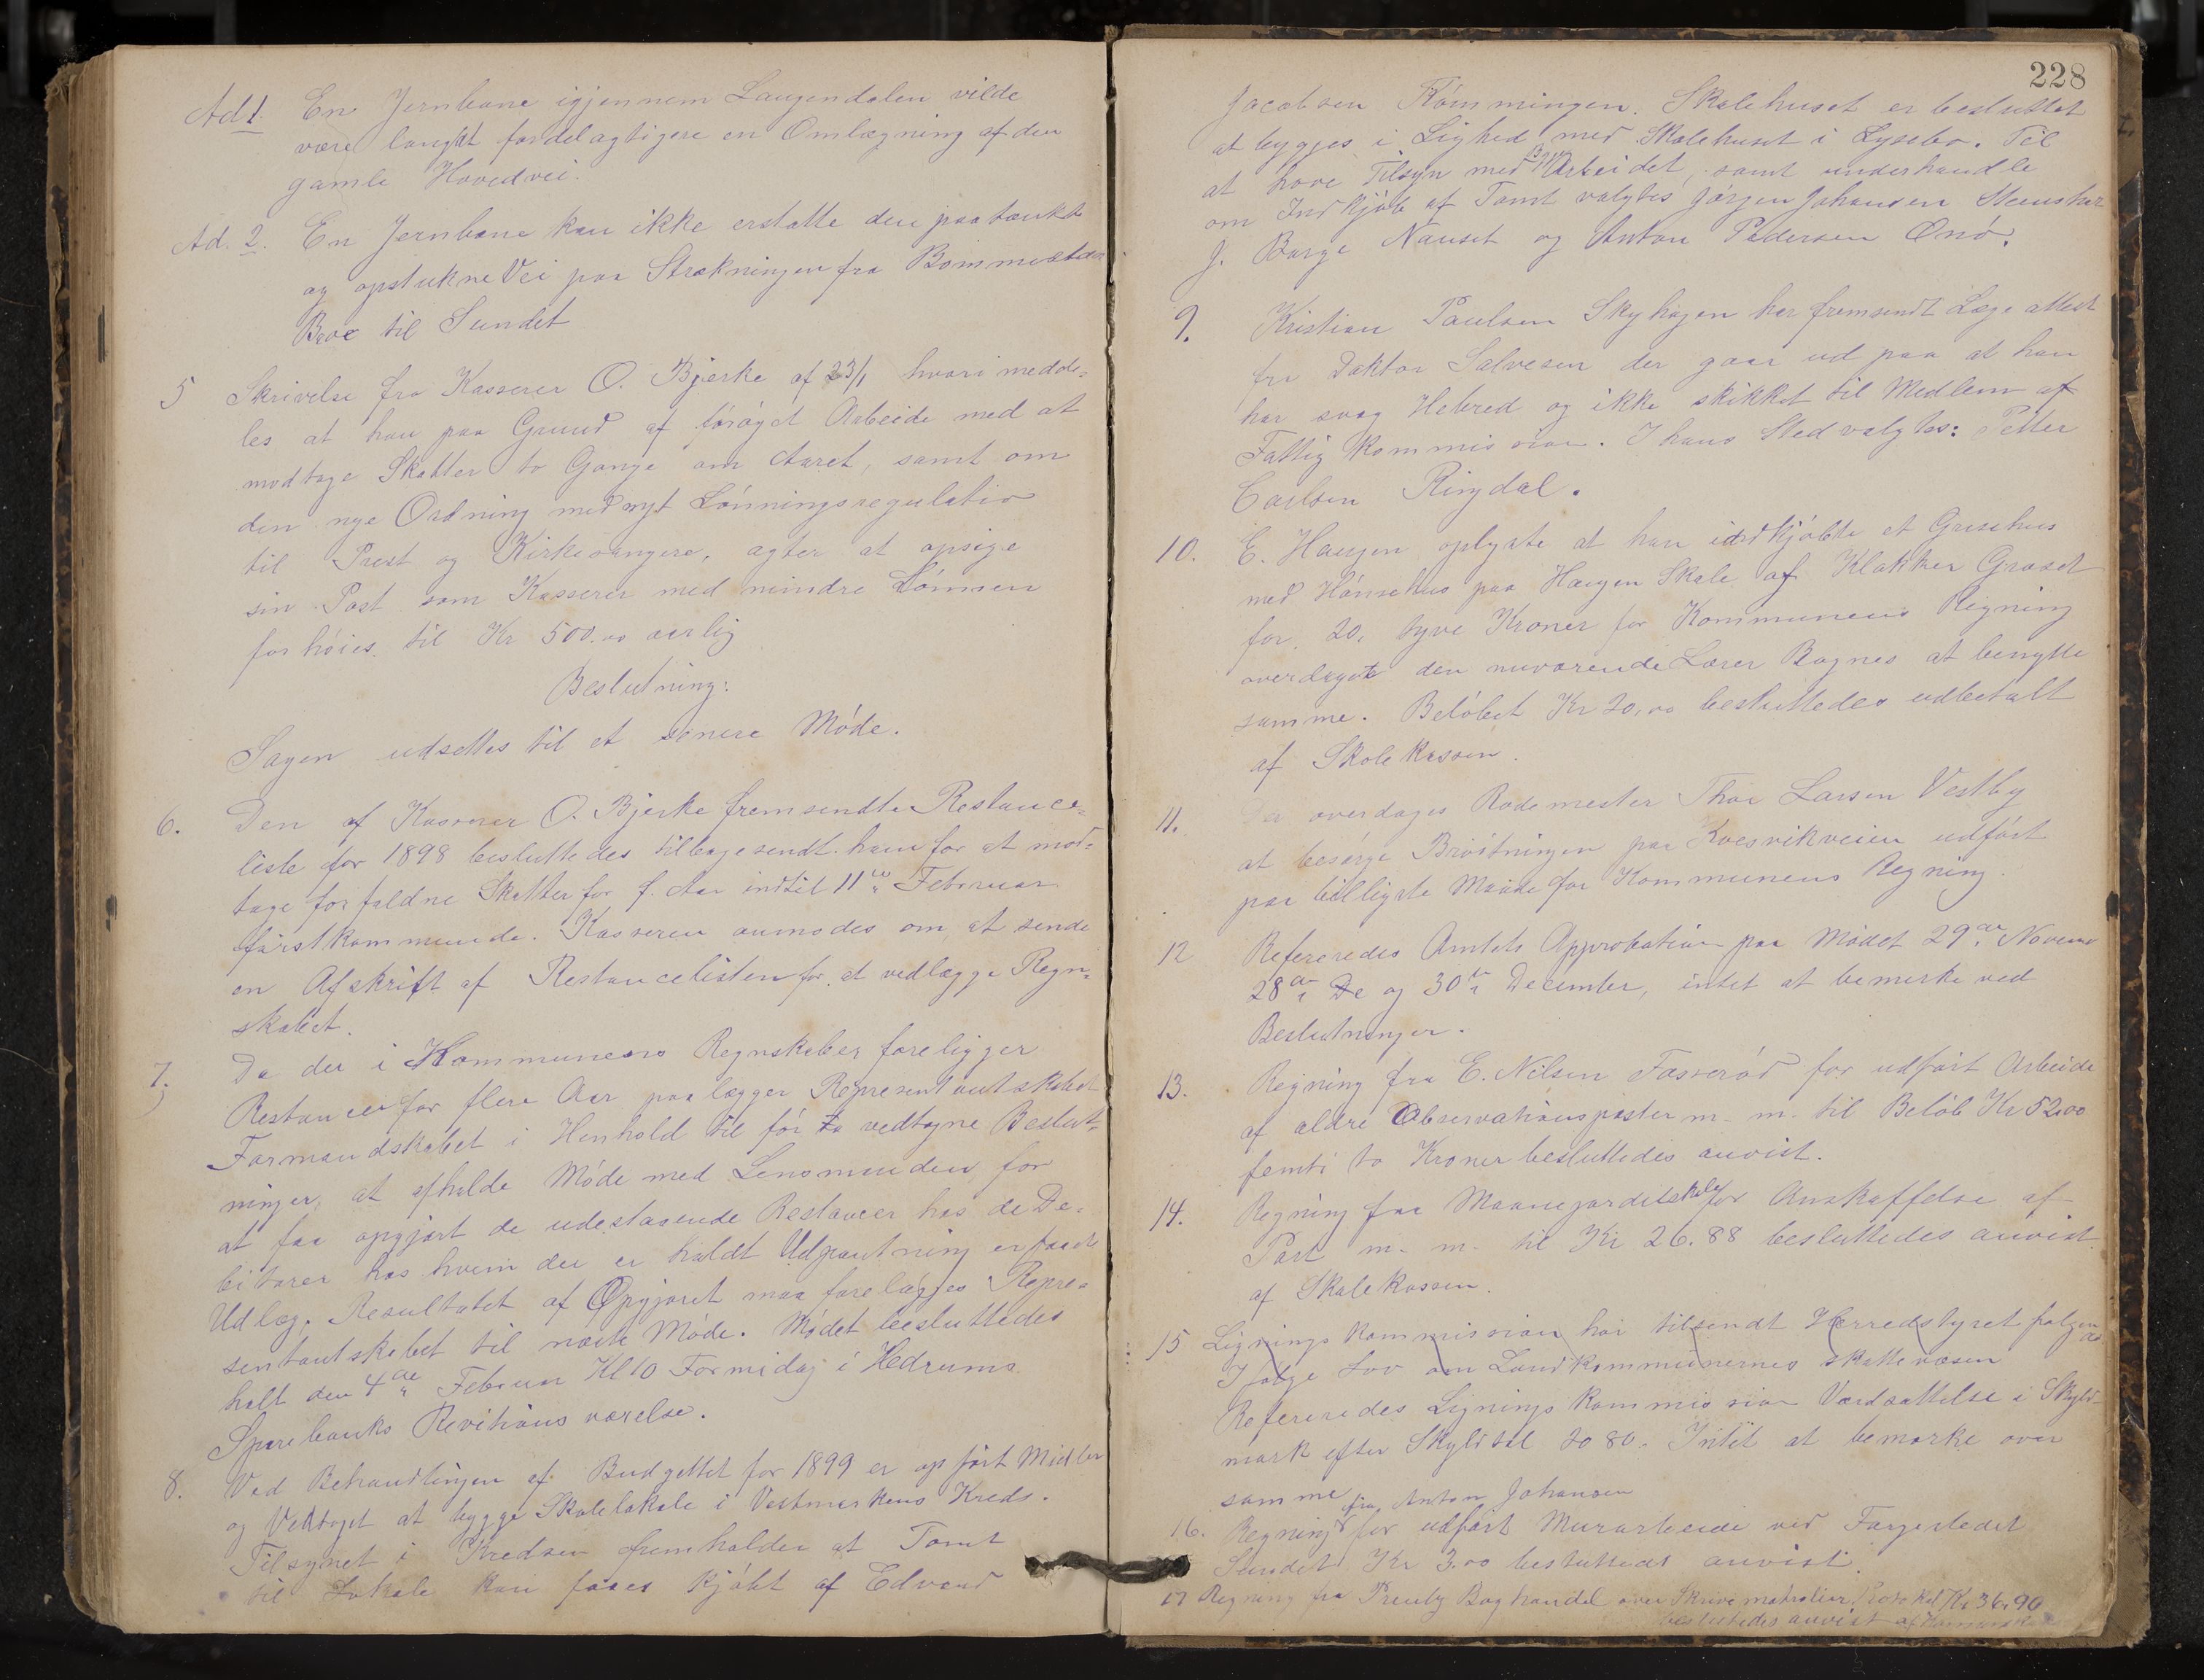 Ad 1. En Jernbane igjennem Laugendalen vilde
være langt fordelagtigere en Omlægning af den
gamle Hovedvei.
Ad. 2. En Jernbane kan ikke erstatte den paatænkte
og opstukne Vei paa Strækningen fra Bommestad
Bro til Sundet
5 Skrivelse fra Kasserer O. Bjerke af 23/1 hvori medde-
les at han paa Grund af forøget Arbeide med at
modtage Skatter to Gange om Aaret, samt om
den nye Ordning med nyt Lønningsregulativ
til Prest og Kirkesangere, agter at opsige
sin Post som Kasserer med mindre Lønnen
forhøies til Kr 500.00 aarlig
Beslutning:
Sagen udsettes til et senere Møde.
6. Den af Kasserer O. Bjerke fremsendte Restance-
liste for 1898 besluttedes tilbagesendt ham for at mod-
tage forfaldne Skatter for f. Aar indtil 11te Februar
førstkommende. Kasseren anmodes om at sende
en Afskrift af Restancelisten for at vedlægge Regn-
skabet.
7. Da der i Kommunens Regnskaber foreligger
Restancer for flere Aar paalægger Representantskabet
Formandskabet i Henhold til før vedtagne Beslut-
ninger, at afholde Møde med Lensmanden for
at faa opgjort de udestaaende Restancer hos de De-
bitorer hos hvem der er holdt Udpantning erfaaet
Udlæg. Resultatet af Opgjøret maa forelægges Repre-
sentantskabet til næste Møde. Mødet besluttedes
holt den 4de Februar Kl 10 Formidag i Hedrums
Sparebanks Revitions værelse.
8. Ved Behandlingen af Budgettet for 1899 er opført Midler
og Vedtaget at bygge Skolelokale i Vestmarkens Kreds.
Tilsynet i Kredsen fremholder at Tomt
til Lokale kan faaes kjøbt af Edvard
228
Jacobsen Rømmingen. Skolehuset er besluttet
at bygges i Lighed med Skolehuset i Lysebo. Til
at have Tilsyn med Bygge Arbeidet, samt underhandle
om Indkjøb af Tomt valgtes Jørgen Johansen Stenshol
J. Borge Nauset og Anton Pedersen Ønø.
9. Kristian Paulsen Skyhagen har fremsendt Lægeattest
fra Doktor Salvesen der gaar ud paa at han
har svag Helbred og ikke skikket til Medlem af
Fattigkommission. I hans Sted valgtes: Petter
Carlsen Ringdal.
10. E. Haugen oplyste at han indkjøbte et Grisehus
med Hønsehus paa Haugen Skole af Klokker Graset
for 20, tyve Kroner for Kommunens Regning
overdraget den nuværende Lærer Bagnes at benytte
samme. Beløbet Kr 20,00 besluttedes udbetalt
af Skolekassen.
11. Der overdages Rodemester Thor Larsen Vestby
at besørge Brøitningen paa Kvesvikveien udført
paa billigste Maade for Kommunens Regning.
12 Refereredes Amtets Approbation paa Mødet 29de Novemb
28de De og 30te December, intet at bemerke ved
Beslutninger.
13. Regning fra E. Nilsen Fosserød for udført Arbeide
af ældre Observationsposter m. m. til Beløb Kr 52.00
femti to Kroner besluttedes anvist.
14. Regning fra Maanejordet skole for Anskaffelse af
Port m. m. til Kr 26.88 besluttedes anvist
af Skolekassen.
15 Lignings kommission har tilsendt Herredstyret følgende
Ifølge Lov om Landkommunernes skattevæsen
Refereredes Ligningskommission Værdsættelse i Skyld-
mark efter Skyldtal 2080. Intet at bemærke over
samme
16. Regning fra Anton Johansen for udført Murarbeide ved Fargestedet
Sundet Kr 3.00 besluttedes anvist.
17 Regning fra Prenby Boghandel over Skrivematralier, Protokol Kr 36.90
besluttedes anvist af